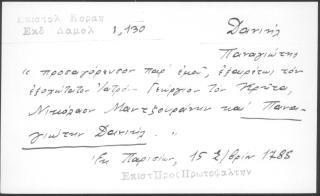 Επιστολ Κοραη
Εκδ Δαμαλ 1,130
Δανιήλ
Παναγιώτης
" προσαγόρευσον παρ' ἐμοῦ, ἐξαιρέτως τὸν
ἐξοχώτατον Ἰατρὸν Γεώργιον τὸν Κρῆτα,
Νικόλαον Μαντζουράνην καὶ Πανα-
γιώτην Δανιήλ. "
Ἐκ Παρισίων, 15 7/βρίου 1788
ΕπιστΠροςΠρωτοψαλτην